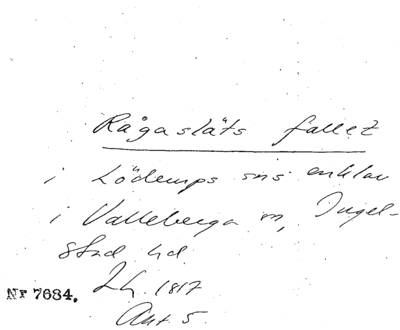 Rågasläts fallet
i Löderups sns enklav
i Valleberga sn, Ingel-
stad hd.
Lh. 1817
Nr 7684.
Akt 5.